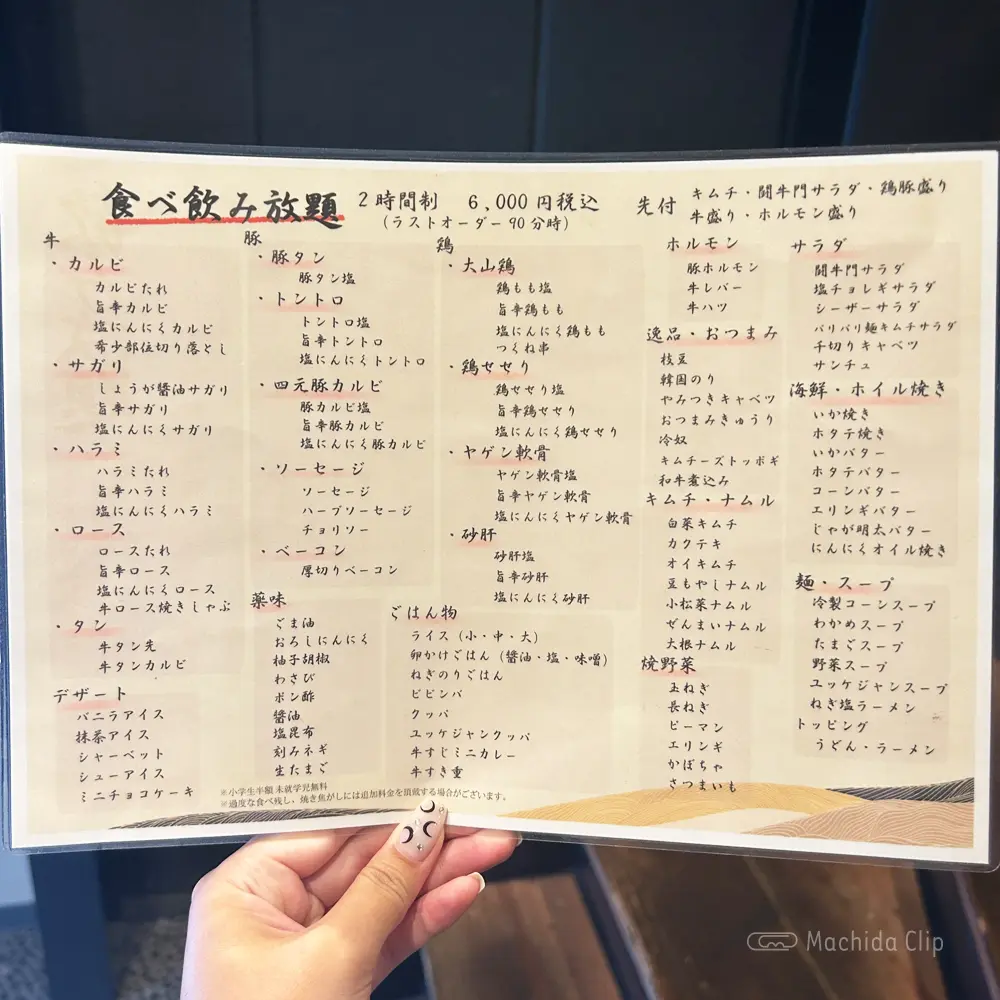 食べ飲み放題 2時間制 6,000円税込
(ラストオーダー90分時)
先付 キムチ・闘牛門サラダ・鶏豚盛り
牛盛り・ホルモン盛り
牛
・カルビ
カルビたれ
旨辛カルビ
塩にんにくカルビ
希少部位切り落とし
・サガリ
しょうが醤油サガリ
旨辛サガリ
塩にんにくサガリ
・ハラミ
ハラミたれ
旨辛ハラミ
塩にんにくハラミ
・ロース
ロースたれ
旨辛ロース
塩にんにくロース
牛ロース焼きしゃぶ
・タン
牛タン先
牛タンカルビ
デザート
バニラアイス
抹茶アイス
シャーベット
シューアイス
ミニチョコケーキ
豚
・豚タン
豚タン塩
・トントロ
トントロ塩
旨辛トントロ
塩にんにくトントロ
・四元豚カルビ
豚カルビ塩
旨辛豚カルビ
塩にんにく豚カルビ
・ソーセージ
ソーセージ
ハーブソーセージ
チョリソー
・ベーコン
厚切りベーコン
薬味
ごま油
おろしにんにく
柚子胡椒
わさび
ポン酢
醬油
塩昆布
刻みネギ
生たまご
鶏
・大山鶏
鶏もも塩
旨辛鶏もも
塩にんにく鶏もも
つくね串
・鶏せせり
鶏せせり塩
旨辛鶏せせり
塩にんにく鶏せせり
・ヤゲン軟骨
ヤゲン軟骨塩
旨辛ヤゲン軟骨
塩にんにくヤゲン軟骨
・砂肝
砂肝塩
旨辛砂肝
塩にんにく砂肝
ごはん物
ライス(小・中・大)
卵かけごはん(醤油・塩・味噌)
ねぎのりごはん
ビビンバ
クッパ
ユッケジャンクッパ
牛すじミニカレー
牛すき重
ホルモン
豚ホルモン
牛レバー
牛ハツ
逸品・おつまみ
枝豆
韓国のり
やみつきキャベツ
おつまみきゅうり
冷奴
キムチーズトッポギ
和牛煮込み
キムチ・ナムル
白菜キムチ
カクテキ
オイキムチ
豆もやしナムル
小松菜ナムル
ぜんまいナムル
大根ナムル
焼野菜
玉ねぎ
長ねぎ
ピーマン
エリンギ
かぼちゃ
さつまいも
サラダ
闘牛門サラダ
塩チョレギサラダ
シーザーサラダ
パリパリ麺キムチサラダ
千切りキャベツ
サンチュ
海鮮・ホイル焼き
いか焼き
ホタテ焼き
いかバター
ホタテバター
コーンバター
エリンギバター
じゃが明太バター
にんにくオイル焼き
麺・スープ
冷製コーンスープ
わかめスープ
たまごスープ
野菜スープ
ユッケジャンスープ
ねぎ塩ラーメン
トッピング
うどん・ラーメン
※小学生半額 未就学児無料
※過度な食べ残し、焼き焦がしには追加料金を頂戴する場合がございます。
Machida Clip